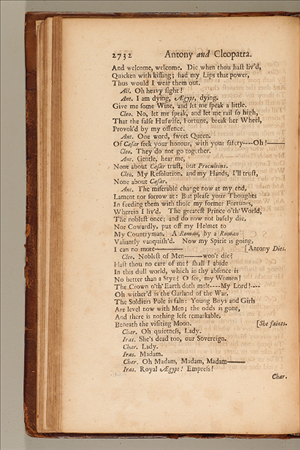 2732 Antony and Cleopatra.
And welcome, welcome. Die when thou hast liv'd,
Quicken with kissing; had my Lips that power,
Thus would I wear them out.
All. Oh heavy sight!
Ant. I am dying, Ægypt, dying.
Give me some Wine, and let me speak a little.
Cleo. No, let me speak, and let me rail so high,
That the false Huswife, Fortune, break her Wheel,
Provok'd by my offence.
Ant. One word, sweet Queen.
Of Cæsar seek your honour, with your safety----Oh!——
Cleo. They do not go together.
Ant. Gentle, hear me,
None about Cæsar trust, but Proculeius.
Cleo. My Resolution, and my Hands, I'll trust,
None about Cæsar.
Ant. The miserable change now at my end,
Lament nor sorrow at: But please your Thoughts
In feeding them with those my former Fortunes,
Wherein I liv'd. The greatest Prince o'th' World,
The noblest once; and do now not basely die,
Nor Cowardly, put off my Helmet to
My Countryman. A Roman, by a Roman
Valiantly vanquish'd. Now my Spirit is going,
I can no more—— [Antony Dies.
Cleo. Noblest of Men——woo't die?
Hast thou no care of me? shall I abide
In this dull world, which in thy absence is
No better than a Stye? O see, my Women!
The Crown o'th' Earth doth melt---My Lord!---
Oh wither'd is the Garland of the War,
The Soldiers Pole is faln: Young Boys and Girls
Are level now with Men; the odds is gone,
And there is nothing left remarkable,
Beneath the visiting Moon. [She faints.
Char. Oh quietness, Lady.
Iras. She's dead too, our Sovereign.
Char. Lady.
Iras. Madam.
Char. Oh Madam, Madam, Madam——
Iras. Royal Ægypt! Empress!
Char.